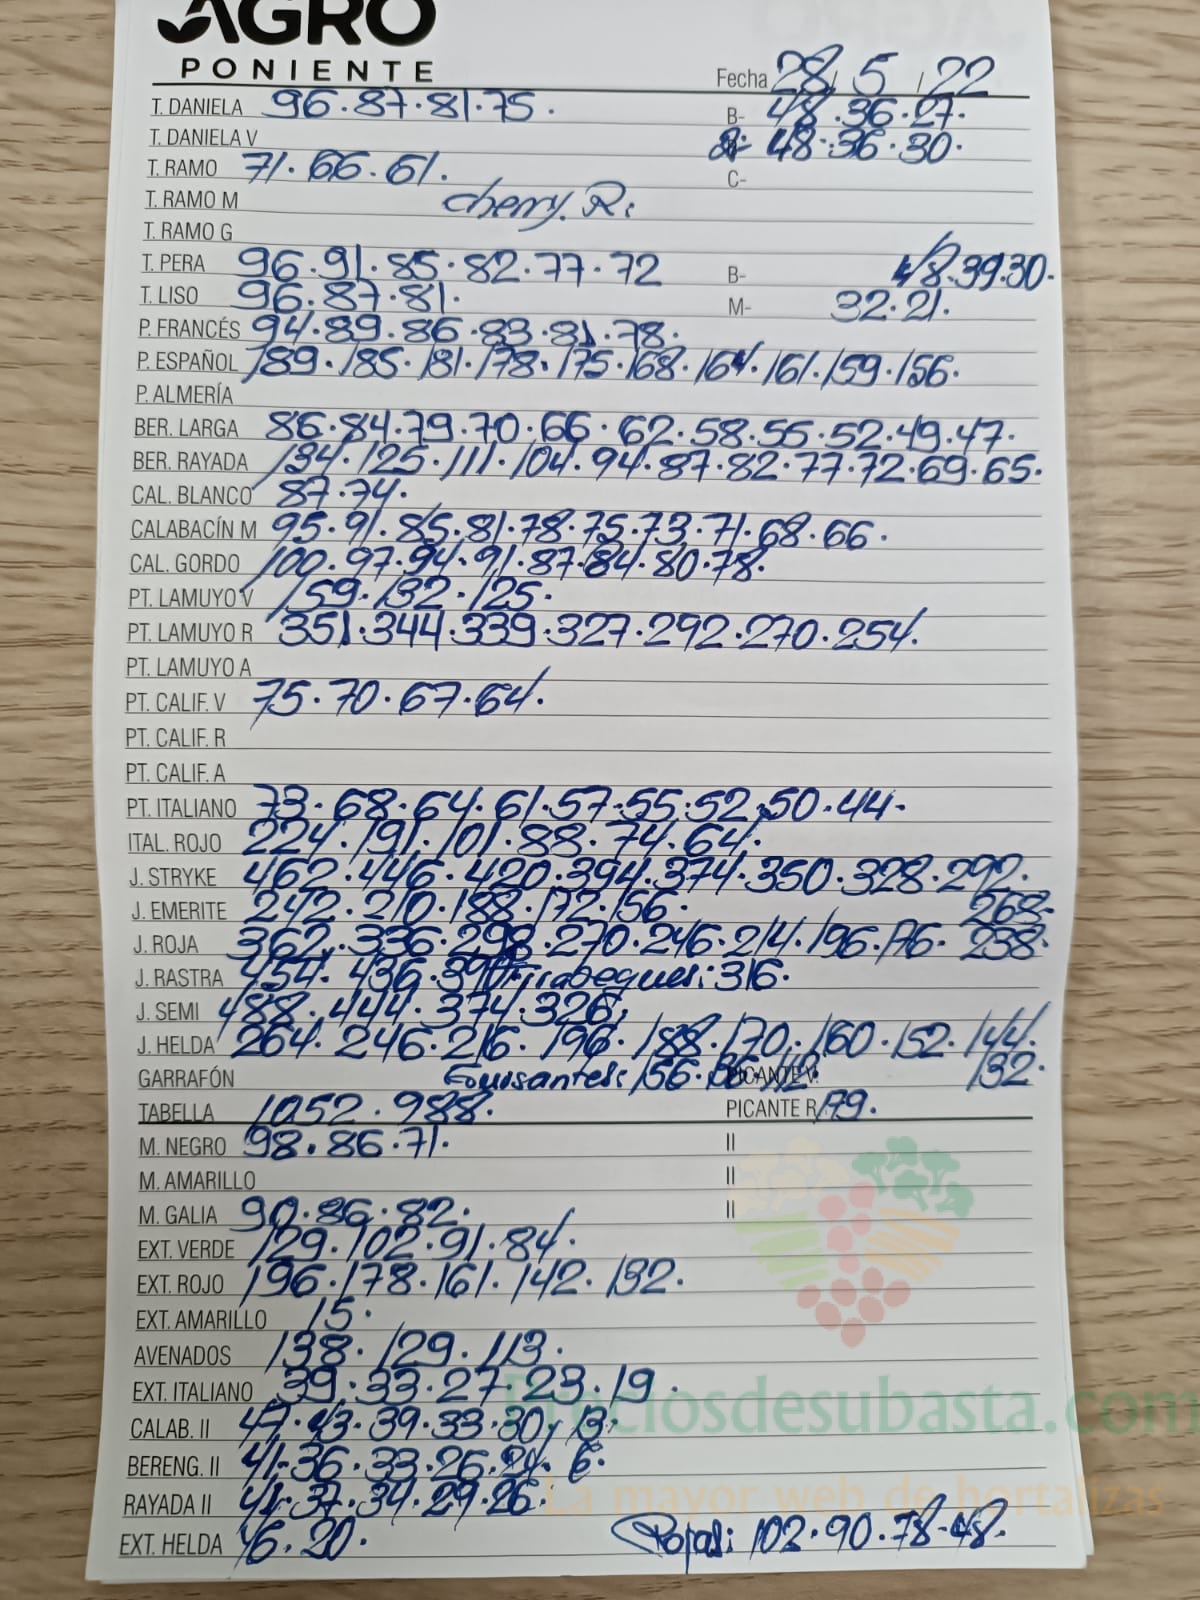 AGRO
PONIENTE
Fecha 28/ 5 /22
T. DANELA 96.87.81.75. B- 48.36.27.
T. DANIELA V 48.36.30.
T. RAMO 71.66.61. C-
T. RAMO M cherry. R:
T. RAMO G
T. PERA 96.91.85.82.77.72 B- 48.39.30.
T. LISO 96.87.81. M- 32.21.
P. FRANCÉS 94.89.86.83.81.78.
P. ESPAÑOL 189.185.181.178.175.168.164.161.159.156.
P. ALMERÍA
BER. LARGA 86.84.79.70.66.62.58.55.52.49.47.
BER. RAYADA 134.125.111.104.94.87.82.77.72.69.65.
CAL. BLANCO 87.74.
CALABACÍN M 95.91.85.81.78.75.73.71.68.66.
CAL. GORDO 100.97.94.91.87.84.80.78.
PT. LAMUYO V 159.132.125.
PT. LAMUYO R 351.344.339.327.292.270.254.
PT. LAMUYO A
PT. CALIF. V 75.70.67.64.
PT. CALIF. R
PT. CALIF. A
PT. ITALIANO 73.68.64.61.57.55.52.50.44.
ITAL. ROJO 224.191.101.88.74.64.
J. STRYKE 462.446.420.394.374.350.328.292.
J. EMERITE 242.210.188.172.156. 268.
J. ROJA 362.336.298.270.246.214.196.176. 238.
J. RASTRA 454.436.390. Tirabeques: 316.
J. SEMI 488.444.374.326.
J. HELDA 264.246.216.196.188.170.160.152.144.
GARRAFÓN Guisantes: 156. PICANTE V. 132.
TABELLA 1052.988. PICANTE R 179.
M. NEGRO 98.86.71. II
M. AMARILLO II
M. GALIA 90.86.82. II
EXT. VERDE 129.102.91.84.
EXT. ROJO 196.178.161.142.132.
EXT. AMARILLO 15.
AVENADOS 138.129.113.
EXT. ITALIANO 39.33.27.23.19.
Preciosdesubasta.com
CALAB. II 47.43.39.33.30.13.
BERENG. II 41.36.33.26.21.6.
RAYADA II 41.37.34.29.26.
La mayor web de hortalizas
EXT. HELDA 46.20. Rojas: 102.90.78.48.